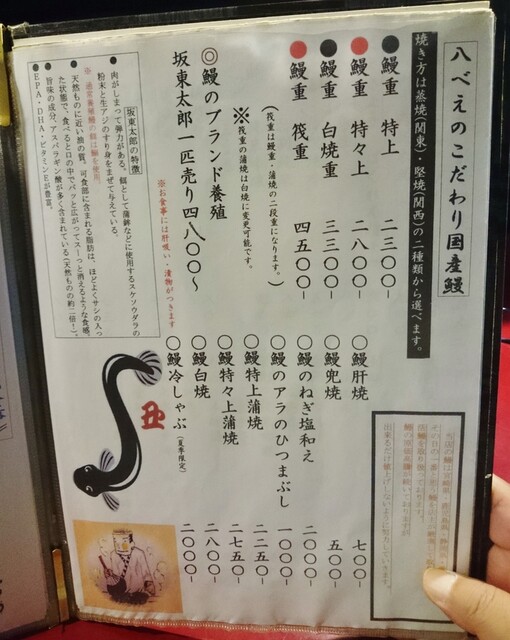 八べえのこだわり国産鰻
焼き方は蒸焼(関東)・堅焼(関西)の二種類から選べます。
●鰻重 特上 二三〇〇-
●鰻重 特々上 二八〇〇-
●鰻重 白焼重 三三〇〇-
●鰻重 筏重 四五〇〇-
(筏重は鰻重・蒲焼の二段重になります。)
※筏重の蒲焼は白焼に変更可能です。
◎鰻のブランド養殖
坂東太郎一匹売り四八〇〇〜
※お食事には肝吸い・漬物がつきます
坂東太郎の特徴
●肉がしまって弾力がある。餌として蒲鉾などに使用するスケソウダラの
粉末と生アジのすり身をまぜて与えている。
●天然ものに近い脂の質。可食部に含まれる脂肪は、ほどよくサンの入っ
た状態で、食べると口の中でパッと広がってスーっと消えるような食感。
●旨味の成分、アスパラギン酸が多く含まれている(天然ものの約二倍!)。
●EPA・DHA・ビタミンEが豊富。
〇鰻肝焼 七〇〇-
〇鰻兜焼 五〇〇-
〇鰻のねぎ塩和え 二〇〇〇-
〇鰻のアラのひつまぶし 一〇〇〇-
〇鰻特上蒲焼 二二五〇-
〇鰻特々上蒲焼 二七五〇-
〇鰻白焼 二八〇〇-
〇鰻冷しゃぶ(夏季限定) 二〇〇〇-
丑